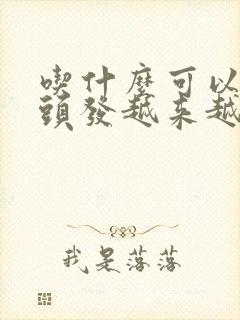 喫什麼可以
頭發越来越
我是落落